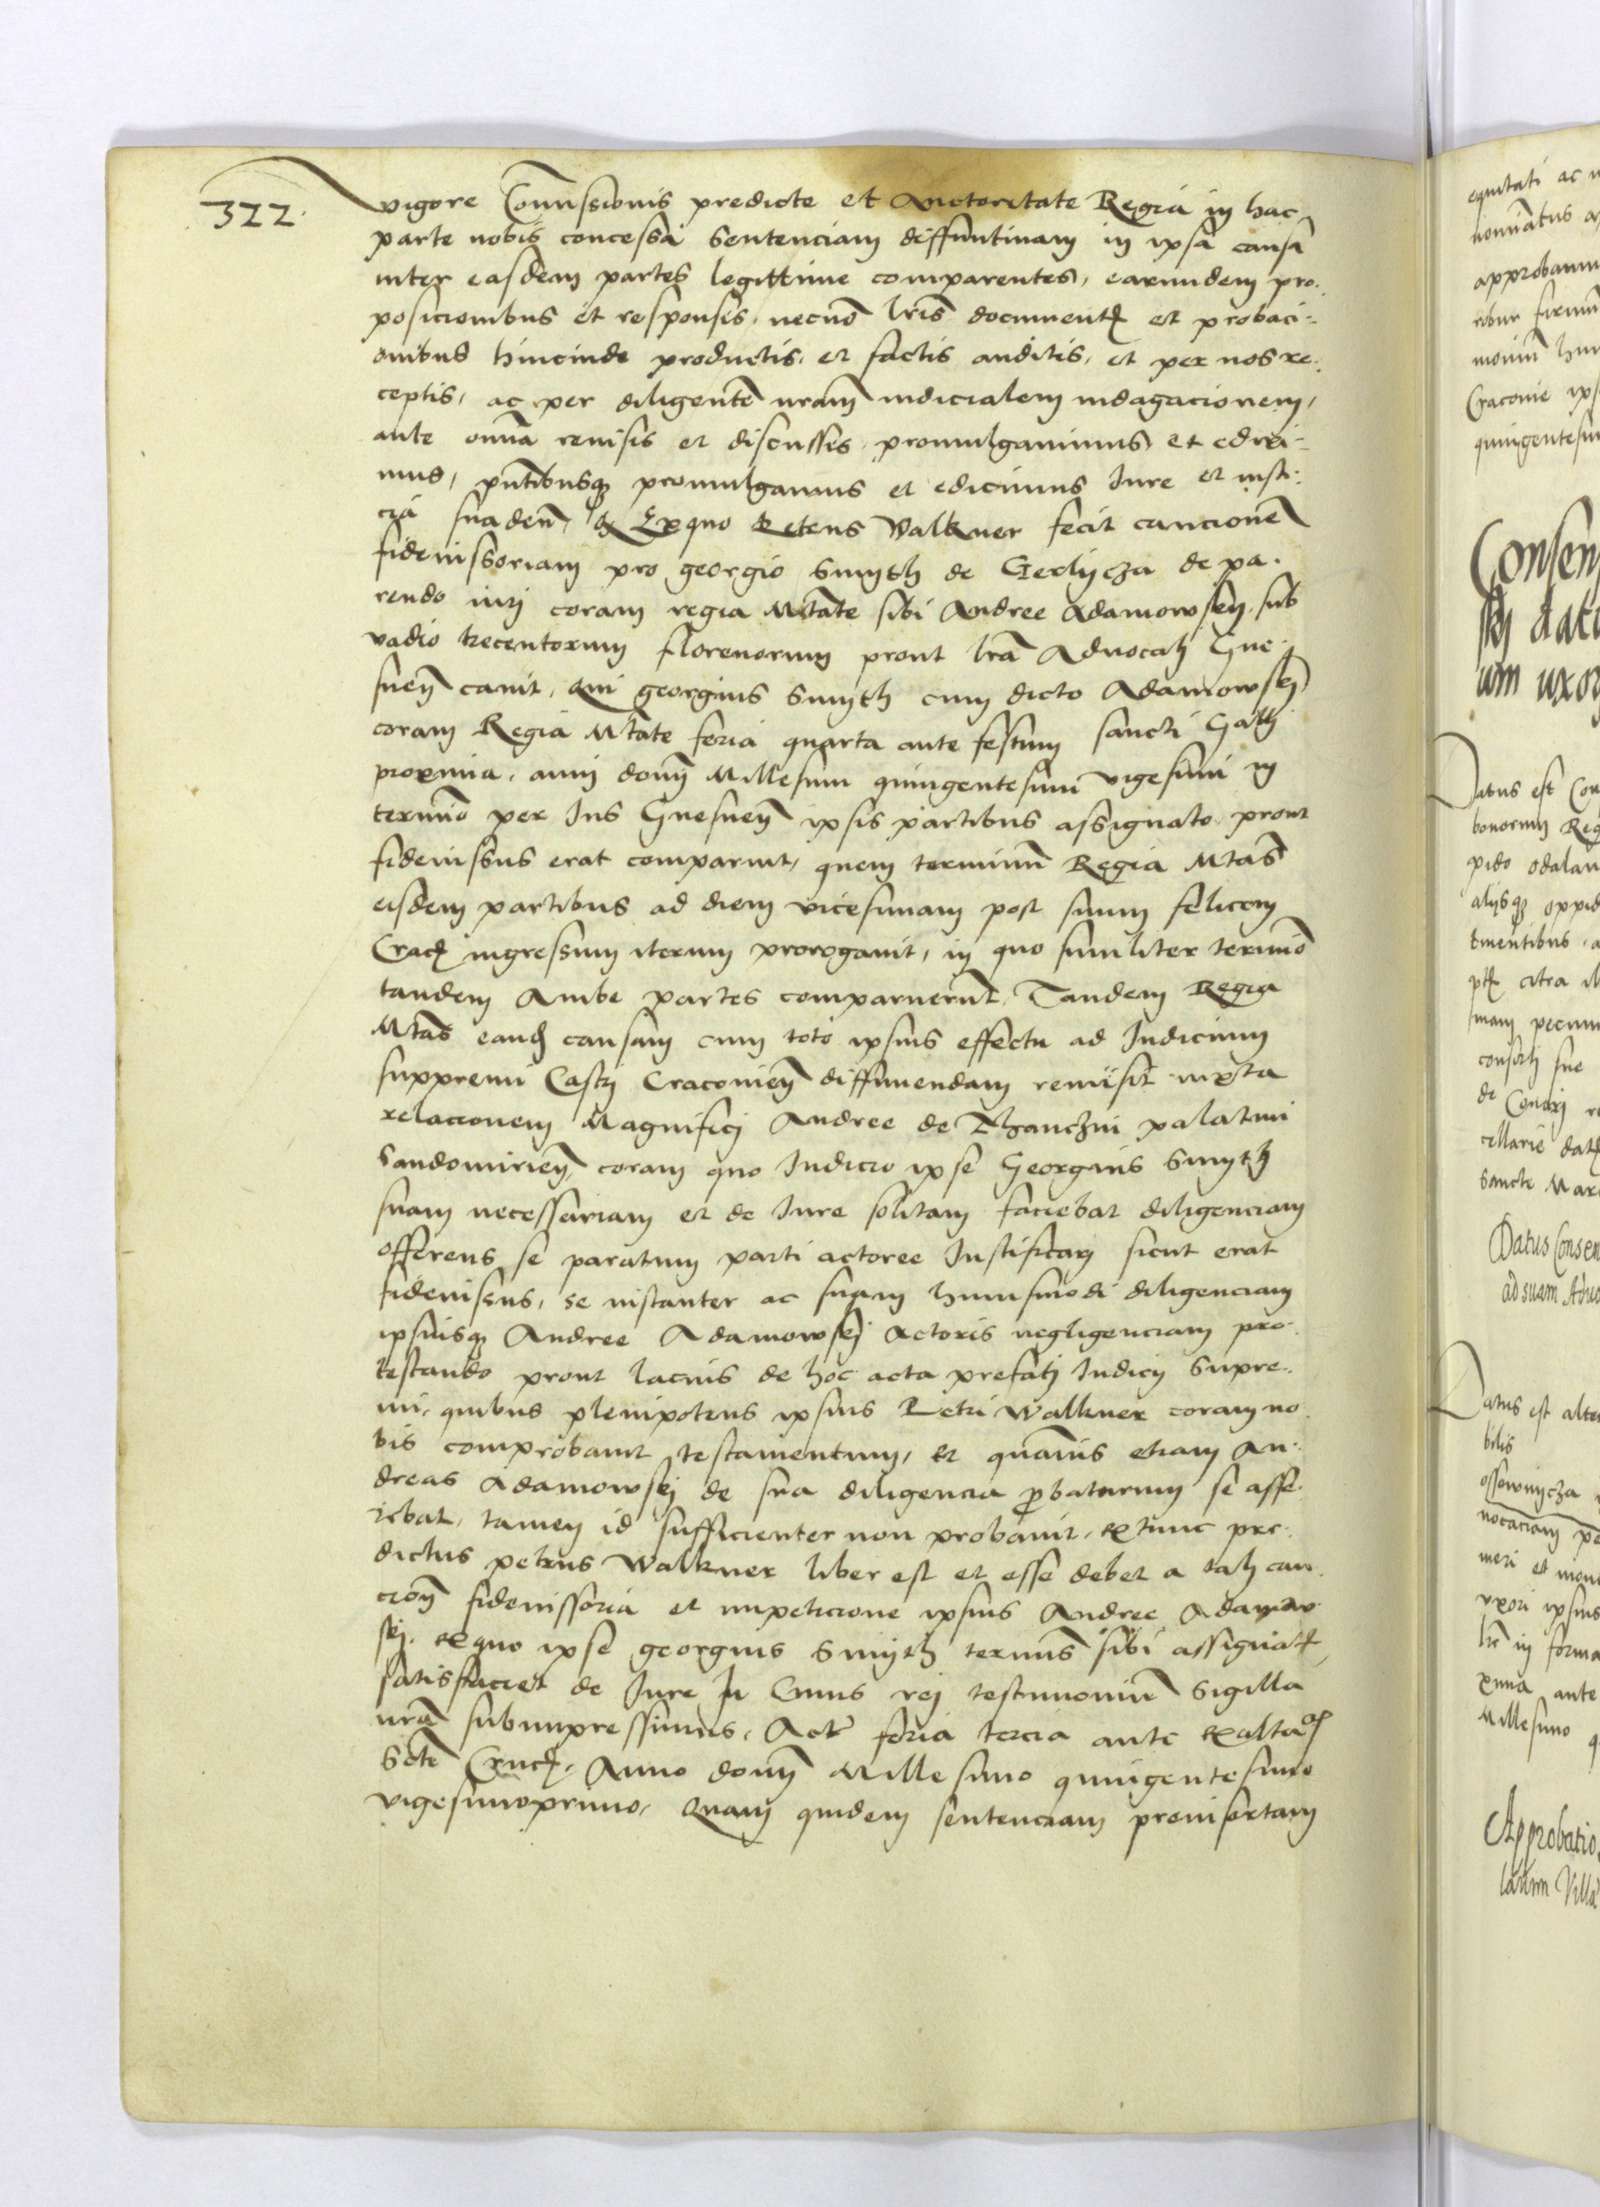 322.
vigore Commissionis predicte et Auctoritate Regia in hac
parte nobis concessa Sentenciam diffinitivam in ipsa causa
inter easdem partes legittime comparentes, earundem pro-
posicionibus et responsis, necnō lris document et probaci-
onibus hincinde productis, et factis auditis, et per nos re-
ceptis, ac per diligentē nram iudicialem indagacionem,
ante omīa revisis et discussis promulgavimus et edixi-
mus, pntibusq promulgamus et edicimus Iure et iusti-
cia suaden, Ex quo Petrus Walkner fecit caucionē
fideiussoriam pro georgio Smyth de Gerlycza de pa-
rendo iuri coram regia Mtate sibi Andree Adamowskj sub
vadio trecentorum florenorum prout lra Advocatj Gne-
snen canit, Qui georgius Smyth cum dicto Adamowskj
coram Regia Mtate feria quarta ante festum sancti Gallj
proxima, anni domi Millesimi quingentesimi vigesimi in
termino per Ius Gnesnen ipsis partibus assignato prout
fideiussus erat comparuit, quem terminū Regia Mtas
eisdem partibus ad diem vicesimam post suum felicem
Crac ingressum iterum prorogavit, in quo similiter termio
tandem Ambe partes comparuerūt, Tandem Regia
Mtas eand causam cum toto ipsius effectu ad Iudicium
suppremi Castrj Cracovien diffiniendam remisit iuxta
relacionem Magnificj Andree de Thanczin palatini
Sandomirien, coram quo Iudicio ipse Georgius Smyth
suam necessariam et de Iure solitam faciebat diligenciam
offerens se paratum parti actoree Iustificarj sicut erat
fideiussus, se instanter ac suam huiusmodi diligenciam
ipsiusq Andree Adamowskj Actoris negligenciam pro-
testando prout lacius de hoc acta prefatj Iudicij Supre-
mi, quibus plenipotens ipsius Petri Walkner coram no-
bis comprobavit testamentum, et quāvis etiam An-
dreas Adamowskj de sua diligencia pbaturum se asse-
rebat, tamen id sufficienter non probavit, extunc pre-
dictus petrus Walkner liber est et esse debet a talj cau-
cion fideiussoria et impeticione ipsius Andree Adamow-
skj. ex quo ipse georgius Smyth termis sibi assignat
satisfaciet de Iure In Cuius rej testimoniū Sigilla
nra subimpressimus, Act feria tercia ante exaltaos
Scte Cruc, Anno domi Millesimo quingentesimo
vigesimoprimo, Quam quidem sentenciam preinsertam
equitati ac
approbavim
Cracovie ips
quingentesim
Consens
skj dat
um uxor
Datus est Con
bonorum Reg
alijsq oppid
Datus Consen
Datus est alter
bilis
uxori ipsius
in forma
xima ante
Millesimo q
Approbatio
larum Villa